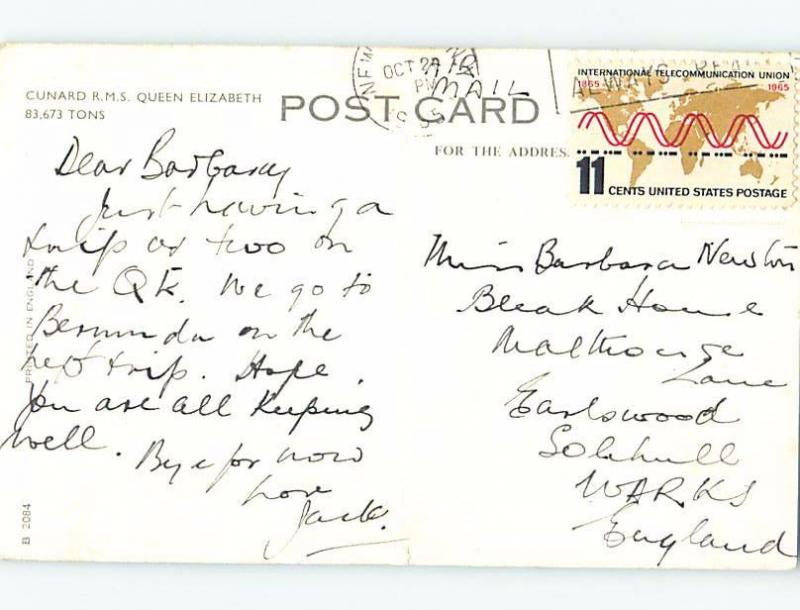 CUNARD R.M.S. QUEEN ELIZABETH
83,673 TONS
POST CARD
FOR THE ADDRES
AIR
MAIL
OCT 2
PM
ALWAYS
INTERNATIONAL TELECOMMUNICATION UNION
1865 1965
11 CENTS UNITED STATES POSTAGE
Dear Barbara
Just having a
trip or two on
the QE. We go to
Bermuda on the
next trip. Hope
you are all keeping
well. Bye for now
Love
Jack.
Miss Barbara Newton
Bleak House
Malthouse
Lane
Earlswood
Solihull
WARKS
England
PRINTED IN ENGLAND
B 2084